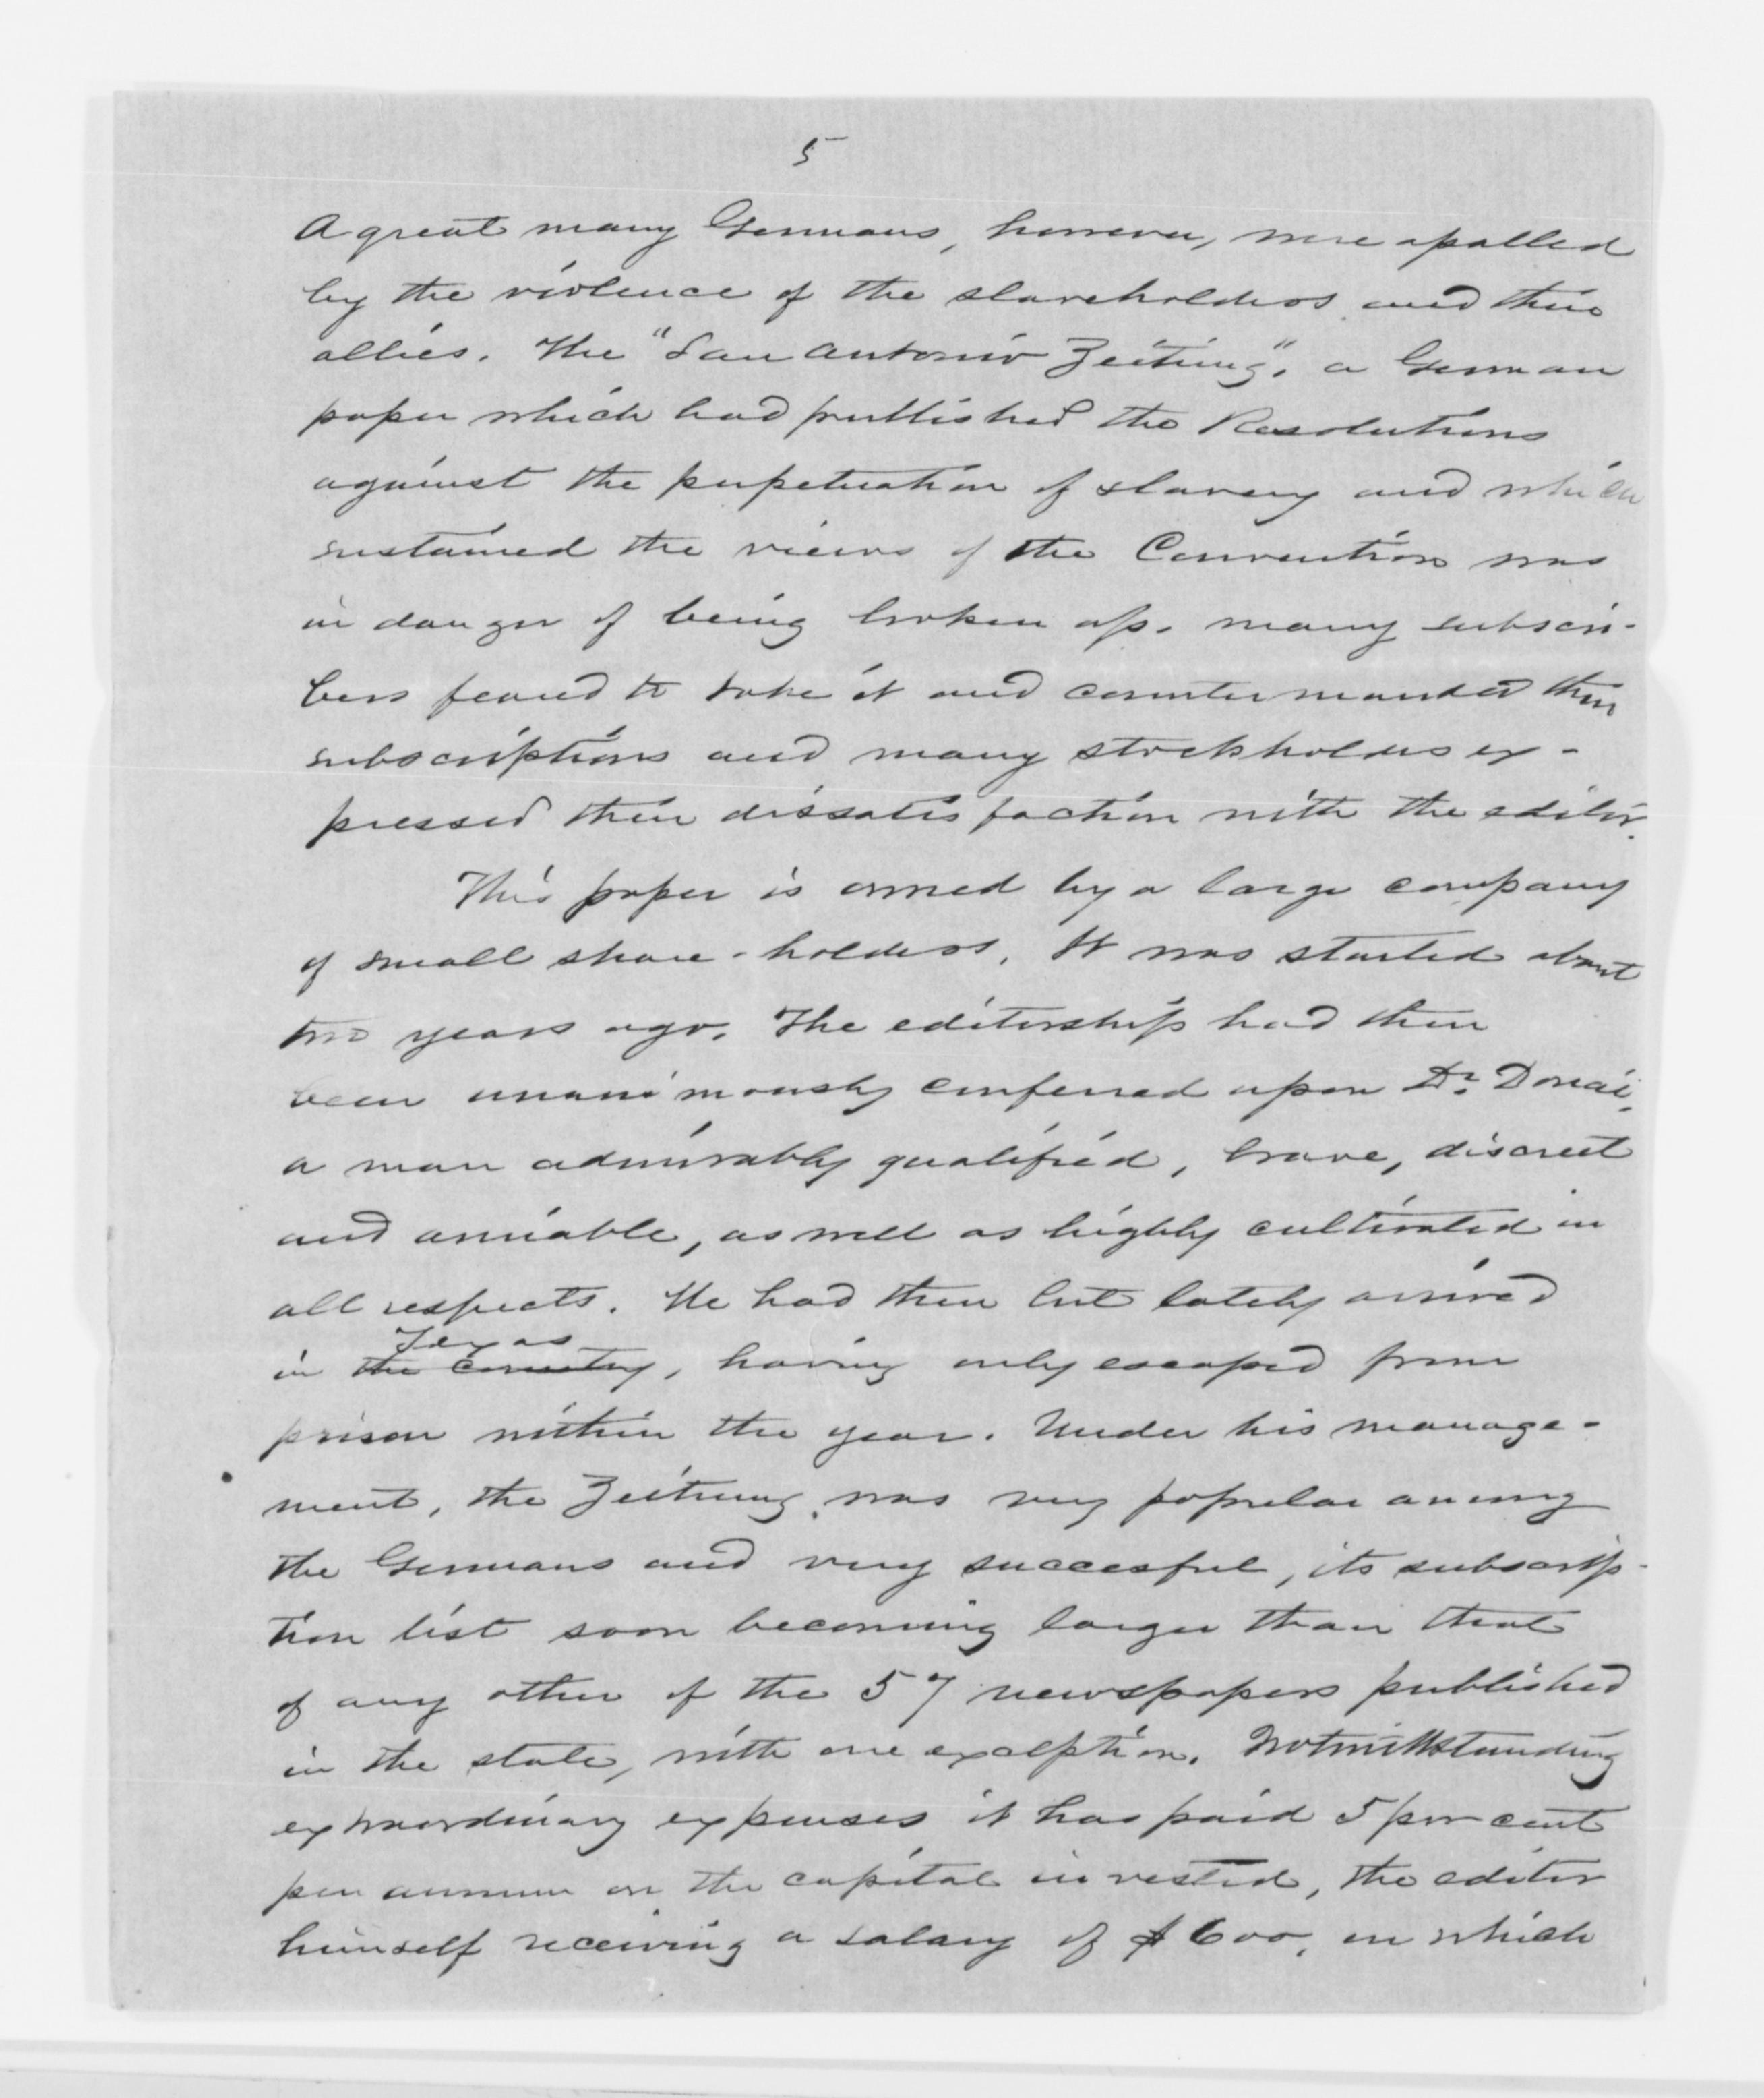 5
A great many Germans, however, were apalled
by the violence of the slaveholders and their
allies. The "San Antonio Zeitung", a German
paper which had published the Resolutions
against the perpetuation of slavery and which
sustained the views of the Convention was
in danger of being broken up. many subscri-
bers feared to take it and countermanded their
subscriptions and many stockholders ex-
pressed their dissatisfaction with the editor.
This paper is owned by a large company
of small share-holders. It was started about
two years ago. The editorship had then
been unanimously conferred upon Dr. Douai,
a man admirably qualified, brave, discreet
and amiable, as well as highly cultivated in
all respects. He had then but lately arrived
Texas
in the country, having only escaped from
prison within the year. Under his manage-
ment, the Zeitung was very popular among
the Germans and very succesful, its subscrip-
tion list soon becoming larger than that
of any other of the 57 newspapers published
in the state, with one exception. Notwithstanding
extraordinary expenses it has paid 5 per cent
per annum on the capital invested, the editor
himself receiving a salary of $600, on which